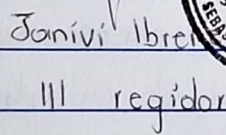 Janivi Ibre
III regidor
SEBA